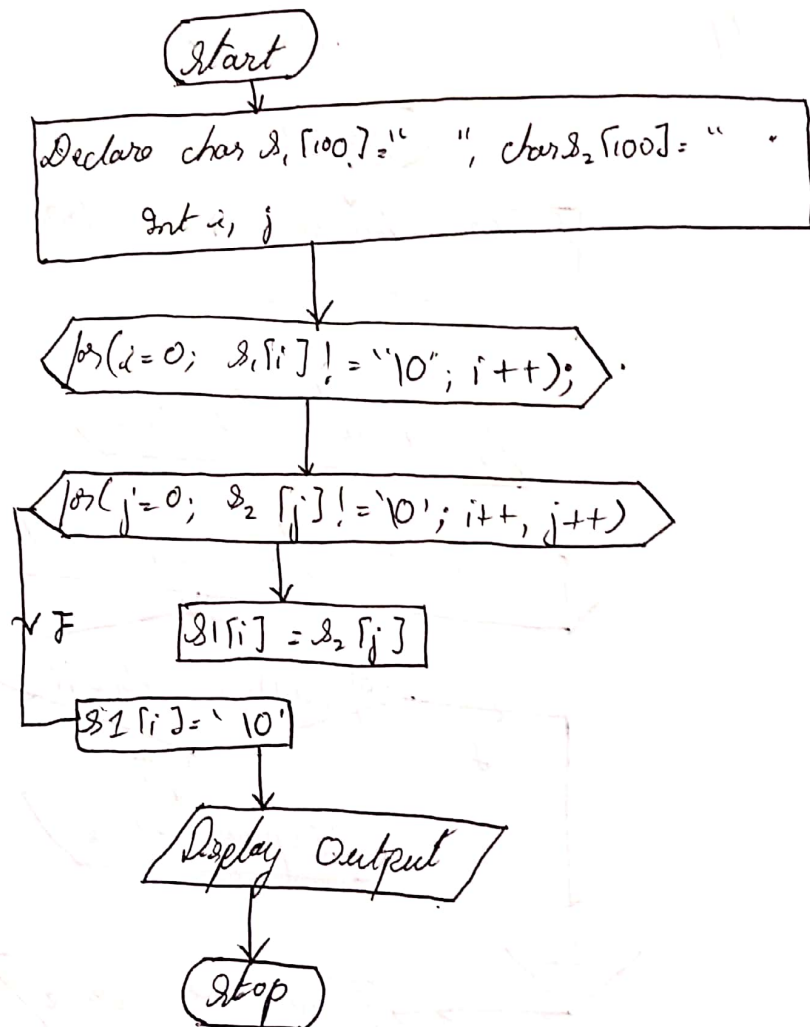 Start
Declare char S1[100]=" ", char S2[100]= "
Int i, j
for(i=0; S1[i]!="\0"; i++);
for(j=0; S2[j]!='\0'; i++, j++)
F
S1[i] = S2[j]
S1[i]='\0'
Display Output
Stop